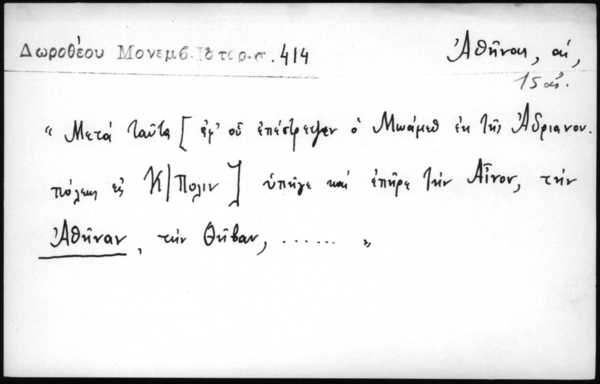 Δωροθέου Μονεμβ. Ιστορ.σ. 414
Ἀθῆναι, αἱ,
15 αἰ.
« Μετὰ ταῦτα [ ἀφ' οὗ ἐπέστρεψεν ὁ Μωάμεθ ἐκ τῆς Ἀδριανου.
πόλεως εἰς Κ/Πολιν ] ὑπῆγε καὶ ἐπῆρε τὴν Αἶνον, τὴν
Ἀθῆναν, τὴν Θῆβαν, ...... »